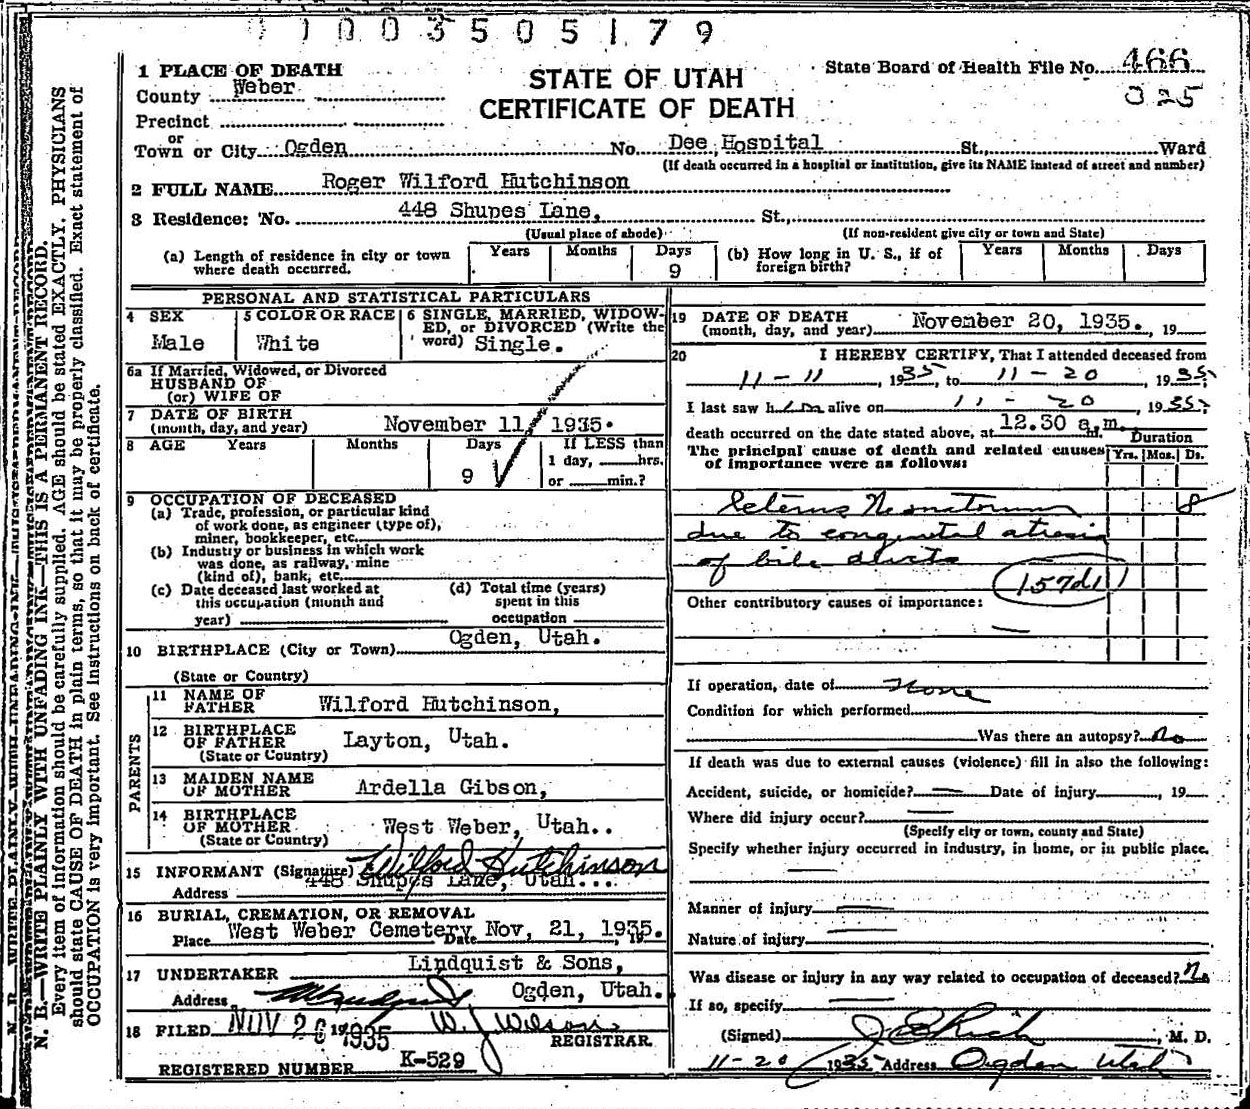 1003505179
State Board of Health File No. 466
025
STATE OF UTAH
CERTIFICATE OF DEATH
1 PLACE OF DEATH
County Weber
Precinct
or
Town or City Ogden No. Dee Hospital St., Ward
(If death occurred in a hospital or institution, give its NAME instead of street and number)
2 FULL NAME Roger Wilford Hutchinson
3 Residence: No. 448 Shupes Lane, St.,
(Usual place of abode) (If non-resident give city or town and State)
(a) Length of residence in city or town where death occurred. Years Months Days 9 (b) How long in U. S., if of foreign birth? Years Months Days
PERSONAL AND STATISTICAL PARTICULARS
4 SEX Male
5 COLOR OR RACE White
6 SINGLE, MARRIED, WIDOWED, or DIVORCED (Write the word) Single.
6a If Married, Widowed, or Divorced
HUSBAND OF
(or) WIFE OF
7 DATE OF BIRTH
(month, day, and year) November 11, 1935.
8 AGE Years Months Days 9 If LESS than
1 day, hrs.
or min.?
9 OCCUPATION OF DECEASED
(a) Trade, profession, or particular kind
of work done, as engineer (type of),
miner, bookkeeper, etc.
(b) Industry or business in which work
was done, as railway, mine
(kind of), bank, etc.
(c) Date deceased last worked at
this occupation (month and
year)
(d) Total time (years)
spent in this
occupation
10 BIRTHPLACE (City or Town) Ogden, Utah.
(State or Country)
PARENTS
11 NAME OF
FATHER Wilford Hutchinson,
12 BIRTHPLACE
OF FATHER Layton, Utah.
(State or Country)
13 MAIDEN NAME
OF MOTHER Ardella Gibson,
14 BIRTHPLACE
OF MOTHER West Weber, Utah..
(State or Country)
15 INFORMANT (Signature) Wilford Hutchinson
Address 448 Shupes Lane, Utah...
16 BURIAL, CREMATION, OR REMOVAL
Place West Weber Cemetery Date Nov, 21, 1935. , 19
17 UNDERTAKER Lindquist & Sons,
Address Ogden, Utah.
18 FILED NOV 26 1935 W. J. Wilson
REGISTRAR.
REGISTERED NUMBER K-529
19 DATE OF DEATH
(month, day, and year) November 20, 1935. , 19
20 I HEREBY CERTIFY, That I attended deceased from
11-11, 1935, to 11-20, 1935.
I last saw him alive on 11-20, 1935;
death occurred on the date stated above, at 12.30 a.m.
The principal cause of death and related causes
of importance were as follows:
Duration
Yrs. Mos. Ds.
Icterus Neonatorum 8
due to congenital atresia
of bile ducts
157d1
Other contributory causes of importance:
If operation, date of None
Condition for which performed
Was there an autopsy? No
If death was due to external causes (violence) fill in also the following:
Accident, suicide, or homicide? Date of injury , 19
Where did injury occur?
(Specify city or town, county and State)
Specify whether injury occurred in industry, in home, or in public place.
Manner of injury
Nature of injury
Was disease or injury in any way related to occupation of deceased? No
If so, specify
(Signed) , M. D.
11-20 1935 Address Ogden Utah
N. B.—WRITE PLAINLY WITH UNFADING INK—THIS IS A PERMANENT RECORD.
Every item of information should be carefully supplied. AGE should be stated EXACTLY. PHYSICIANS
should state CAUSE OF DEATH in plain terms, so that it may be properly classified. Exact statement of
OCCUPATION is very important. See instructions on back of certificate.